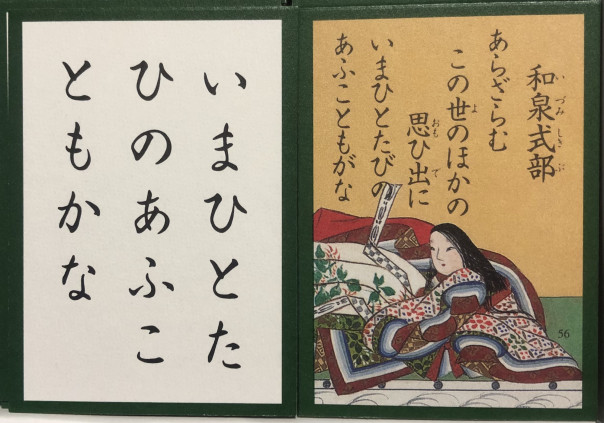 いまひとた
ひのあふこ
ともかな
和泉式部
いづみしきぶ
あらざらむ
この世のほかの
よ
思ひ出に
おもで
いまひとたびの
あふこともがな
56